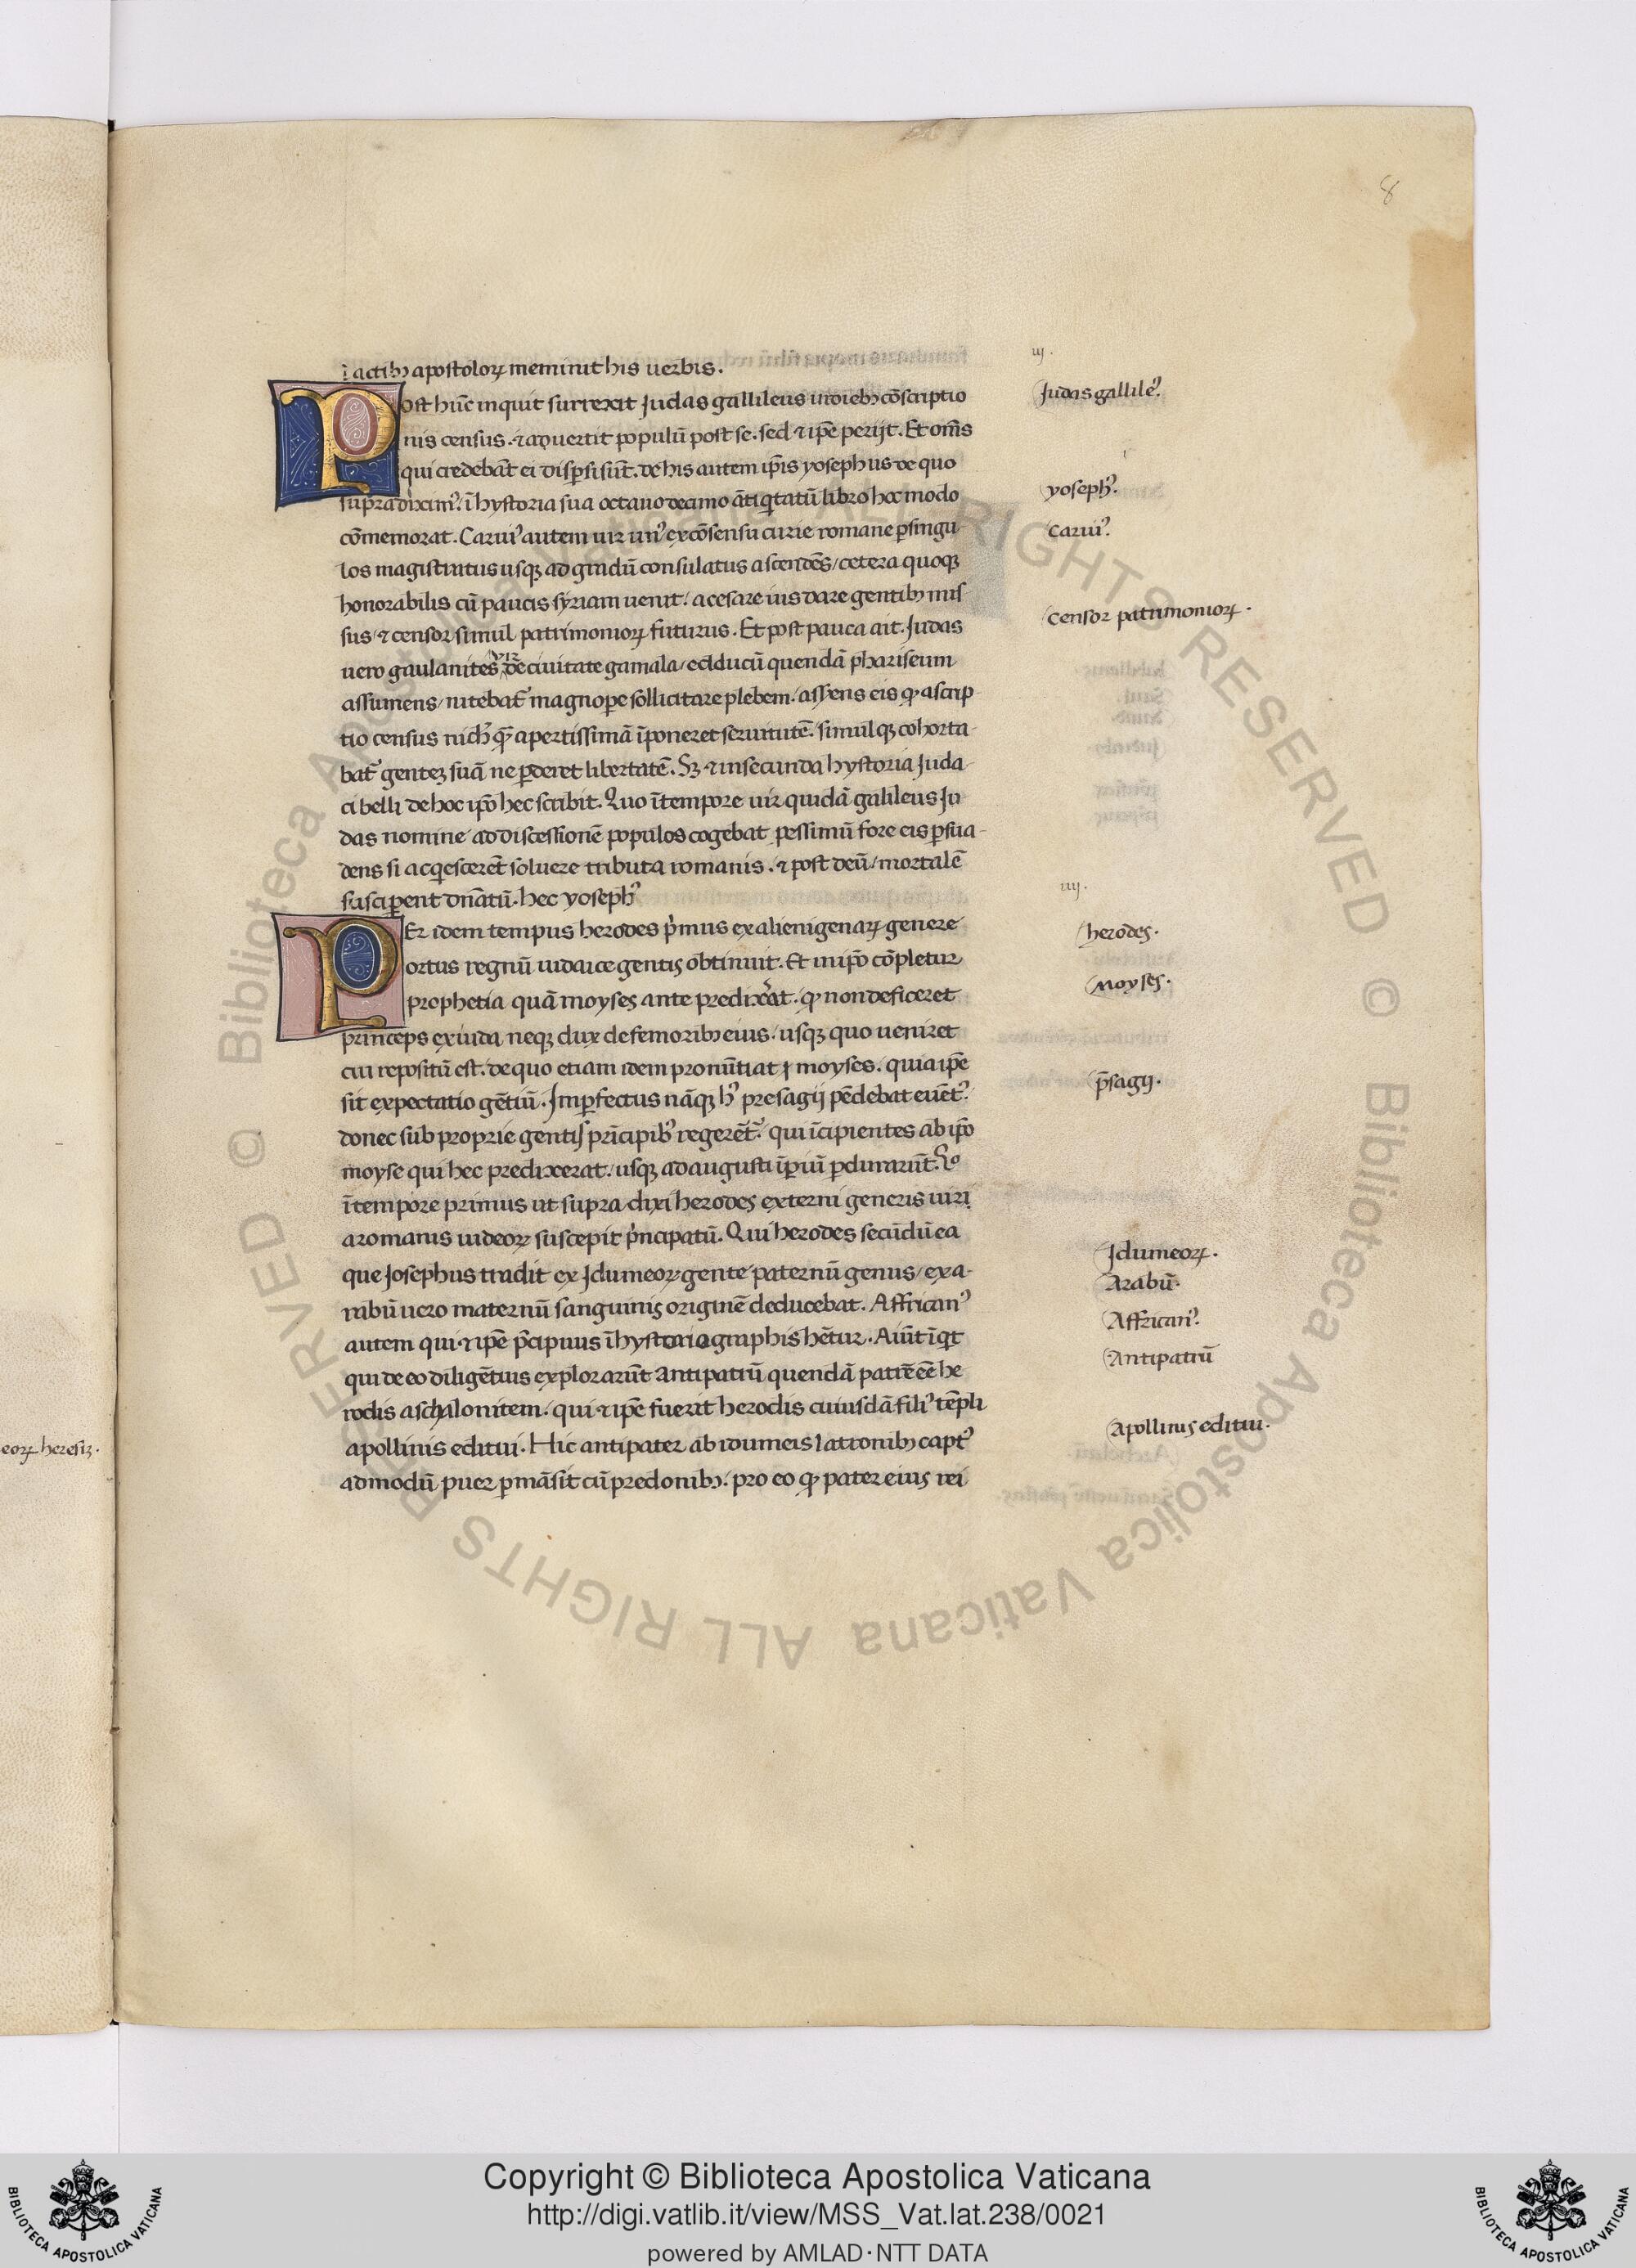 8
ī actibꝫ apostoloꝝ meminit his uerbis.
Post hūc inquit surrexit Judas gallileus in diebꝫ cōscriptio
nis census. ⁊ aduertit populū post se. sed ⁊ ip̄e perijt. Et om̄s
qui credebāt ei disꝑsi sūt. de his autem ip̄is yosephus de quo
supra diximꝰ. ī hystoria sua octauo decimo ātiqͥtatū libro hoc modo
cōmemorat. Caruiꝰ autem uir unꝰ ex cōsensu curie romane ꝑ singu
los magistratus usqꝫ ad gradū consulatus ascendēs / cetera quoqꝫ
honorabilis cū paucis syriam uenit / a cesare ius dare gentibꝫ mis
sus / ⁊ censor simul patrimonioꝝ futurus. Et post pauca ait. Judas
uero gaulanites uir de ciuitate gamala / educū quendā phariseum
assumens / nitebat᷑ magnope sollicitare plebem / asserens eis ꝙ ascrip-
tio census nichꝰ qͣꝫ apertissimā īponeret seruitutē. simulqꝫ cohorta-
bat᷑ gentez suā ne ꝑderet libertatē. Sꝫ ⁊ in secunda hystoria Juda-
ci belli de hoc ip̄o hec scribit. Quo ī tempore uir quidā galileus Ju
das nomine ad discessionē populos cogebat pessimū fore eis ꝑsua-
dens si acqͥesceret soluere tributa romanis. ⁊ post deū / mortalē
susciperent dn̄atū. hec yosephꝰ
PEr idem tempus herodes pͥmus ex alienigenaꝝ genere
ortus regnū iudaice gentis obtinuit. Et in ip̄o cōpletur
prophetia quā moyses ante predixerat. ꝙ non deficeret
princeps ex iuda neqꝫ dux de femoribꝫ eius / usqꝫ quo ueniret
cui repositū est. de quo etiam idem pronūtiat moyses. quia ip̄e
sit expectatio gētiū. Imꝑfectus nāqꝫ hꝰ presagij pēdebat euētꝰ.
donec sub proprie gentis prīcipibꝰ regerēt᷑. qui īcipientes ab ip̄o
moyse qui hec predixerat / usqꝫ ad augusti īperiū ꝑdurarūt. Qͦ
ī tempore primus ut supra dixi herodes externi generis uiri
a romanis iudeoꝝ suscepit pͥncipatū. Qui herodes secūdū ea
que Josephus tradit ex Jdumeoꝝ gente paternū genus / ex a-
rabū uero maternū sanguinis originē deducebat. Affricanꝰ
autem qui ⁊ ip̄e p̄cipuus ī hystoriographis hētur. Aiūt īqͥt
qui de eo diligētius explorarūt antipatrū quendā patrē eē he
rodis aschalonitem / qui ⁊ ip̄e fuerit herodis cuiusdā filiꝰ tēpli
apollinis editui. Hic antipater ab idumeis latronibꝫ captꝰ
admodū puer ꝑmāsit cū predonibꝫ. pro eo ꝙ pater eius rei
iij.
Judas gallileꝰ.
yosephꝰ.
caruiꝰ.
censor patrimonioꝝ.
iiij.
herodes.
Moyses.
p̄sagij.
Jdumeoꝝ.
Arabū.
Affricanꝰ.
Antipatrū
Apollinis editui.
eoꝝ heresiz.
Copyright © Biblioteca Apostolica Vaticana
http://digi.vatlib.it/view/MSS_Vat.lat.238/0021
powered by AMLAD·NTT DATA
BIBLIOTECA APOSTOLICA VATICANA
BIBLIOTECA APOSTOLICA VATICANA
© Biblioteca Apostolica Vaticana ALL RIGHTS RESERVED © Biblioteca Apostolica Vaticana ALL RIGHTS RESERVED